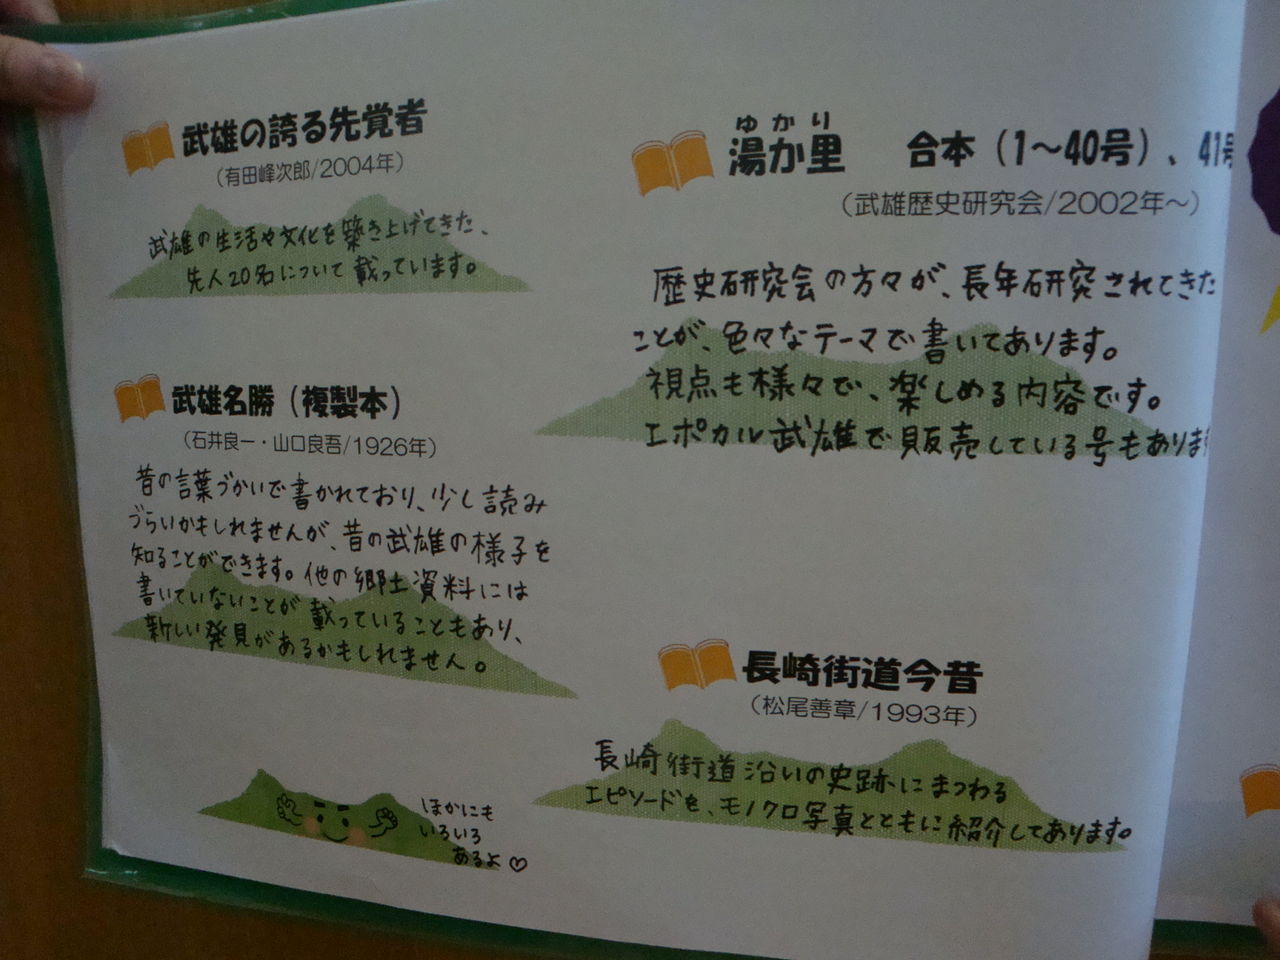 武雄の誇る先覚者
（有田峰次郎/2004年）
武雄の生活や文化を築き上げてきた、
先人20名について載っています。
武雄名勝（複製本）
（石井良一・山口良吾/1926年）
昔の言葉づかいで書かれており、少し読み
づらいかもしれませんが、昔の武雄の様子を
知ることができます。他の郷土資料には
書いていないことが載っていることもあり、
新しい発見があるかもしれません。
ほかにも
いろいろ
あるよ♡
ゆかり
湯か里　合本（1～40号）、41号
（武雄歴史研究会/2002年～）
歴史研究会の方々が、長年研究されてきた
ことが、色々なテーマで書いてあります。
視点も様々で、楽しめる内容です。
エポカル武雄で販売している号もあります
長崎街道今昔
（松尾善章/1993年）
長崎街道沿いの史跡にまつわる
エピソードを、モノクロ写真とともに紹介してあります。